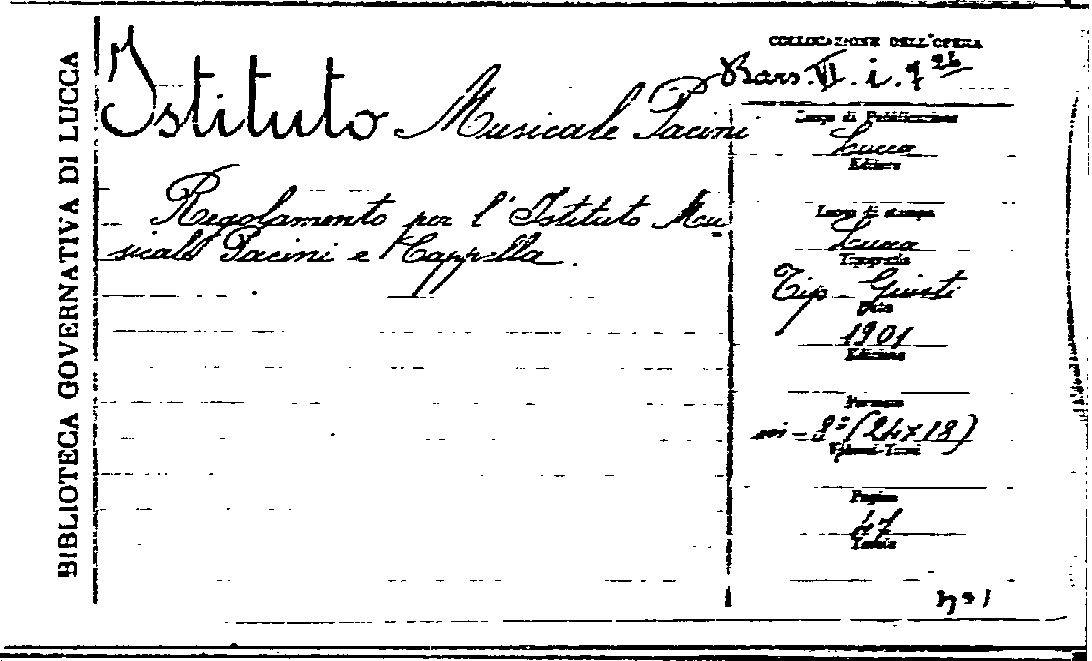 BIBLIOTECA GOVERNATIVA DI LUCCA
Istituto Musicale Pacini
Regolamento per l'Istituto Mu-
sicale Pacini e Cappella.
COLLOCAZIONE DELL'OPERA
Bars. VI. i. 7
Luogo di Pubblicazione
Lucca
Editore
Luogo di stampa
Lucca
Tipografia
Tip. Giusti
Data
1901
Edizione
Formato
8º (24x18)
Volumi-Tomi
Pagine
47
Tavole